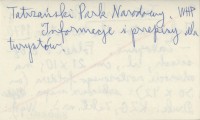 Tatrzański Park Narodowy. WHP
Informacje i przepisy dla
turystów.